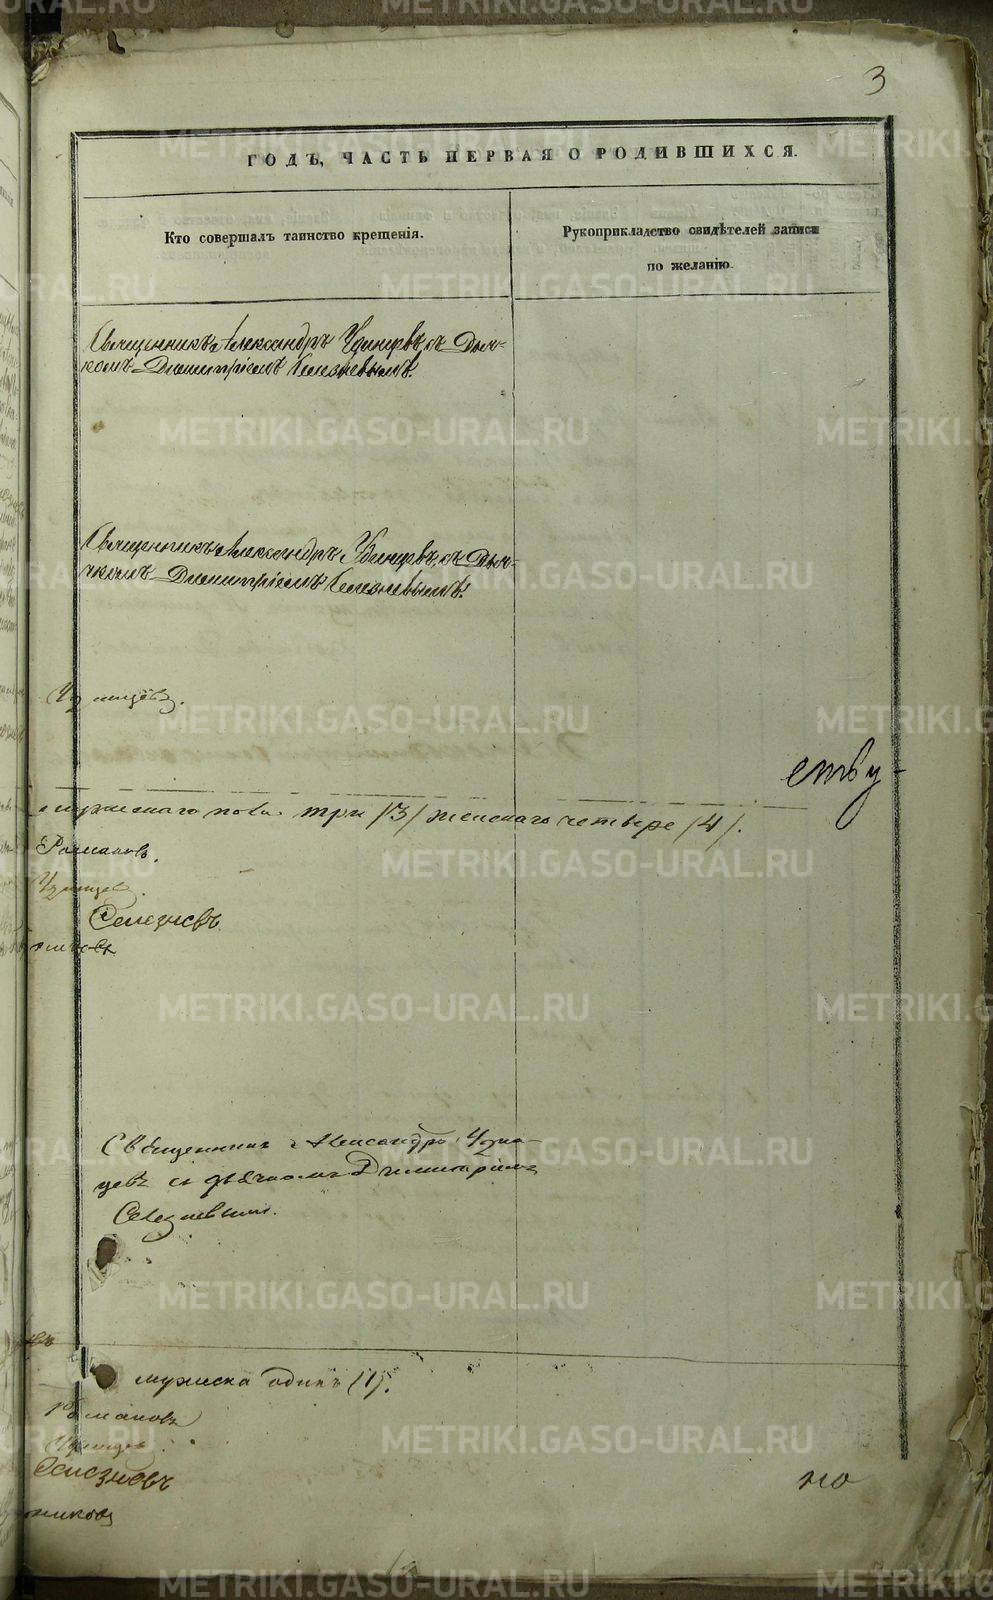 3
ГОДЪ, ЧАСТЬ ПЕРВАЯ О РОДИВШИХСЯ.
Кто совершалъ таинство крещенія.
Рукоприкладство свидѣтелей записи
по желанію.
Священникъ Александръ Удинцевъ, съ Дьяч-
комъ Димитріемъ Селезневымъ.
Священникъ Александръ Удинцевъ, съ Дьяч-
чкомъ Димитріемъ Селезневымъ.
Удинцевъ.
мужескаго пола три /3/ женскаго четыре /4/.
Романовъ.
Удинцевъ.
Селезневъ
Священникъ Александръ Удин-
цевъ съ дьячкомъ Димитріемъ
Селезневымъ.
мужеска одинъ (1).
Романовъ
Удинцевъ
Селезневъ
METRIKI.GASO-URAL.RU